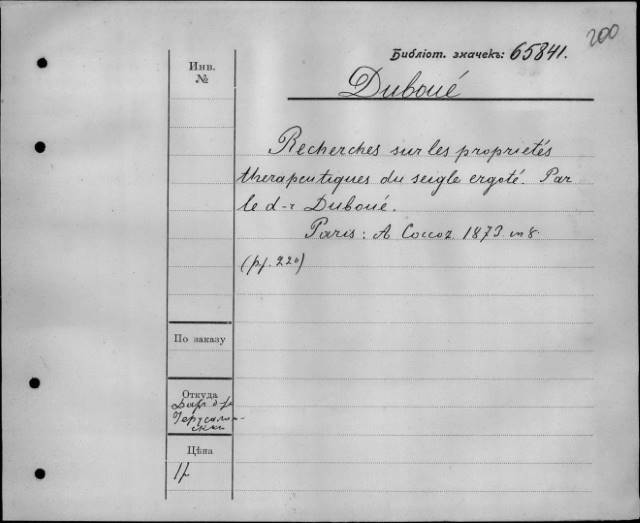 200
Библіот. значекъ: 65841.
Инв.
№
Duboué
Recherches sur les proprietés
therapeutiques du seigle ergoté. Par
le d-r Duboué.
Paris: A Coccoz. 1873. in 8.
По заказу
Откуда
Цѣна